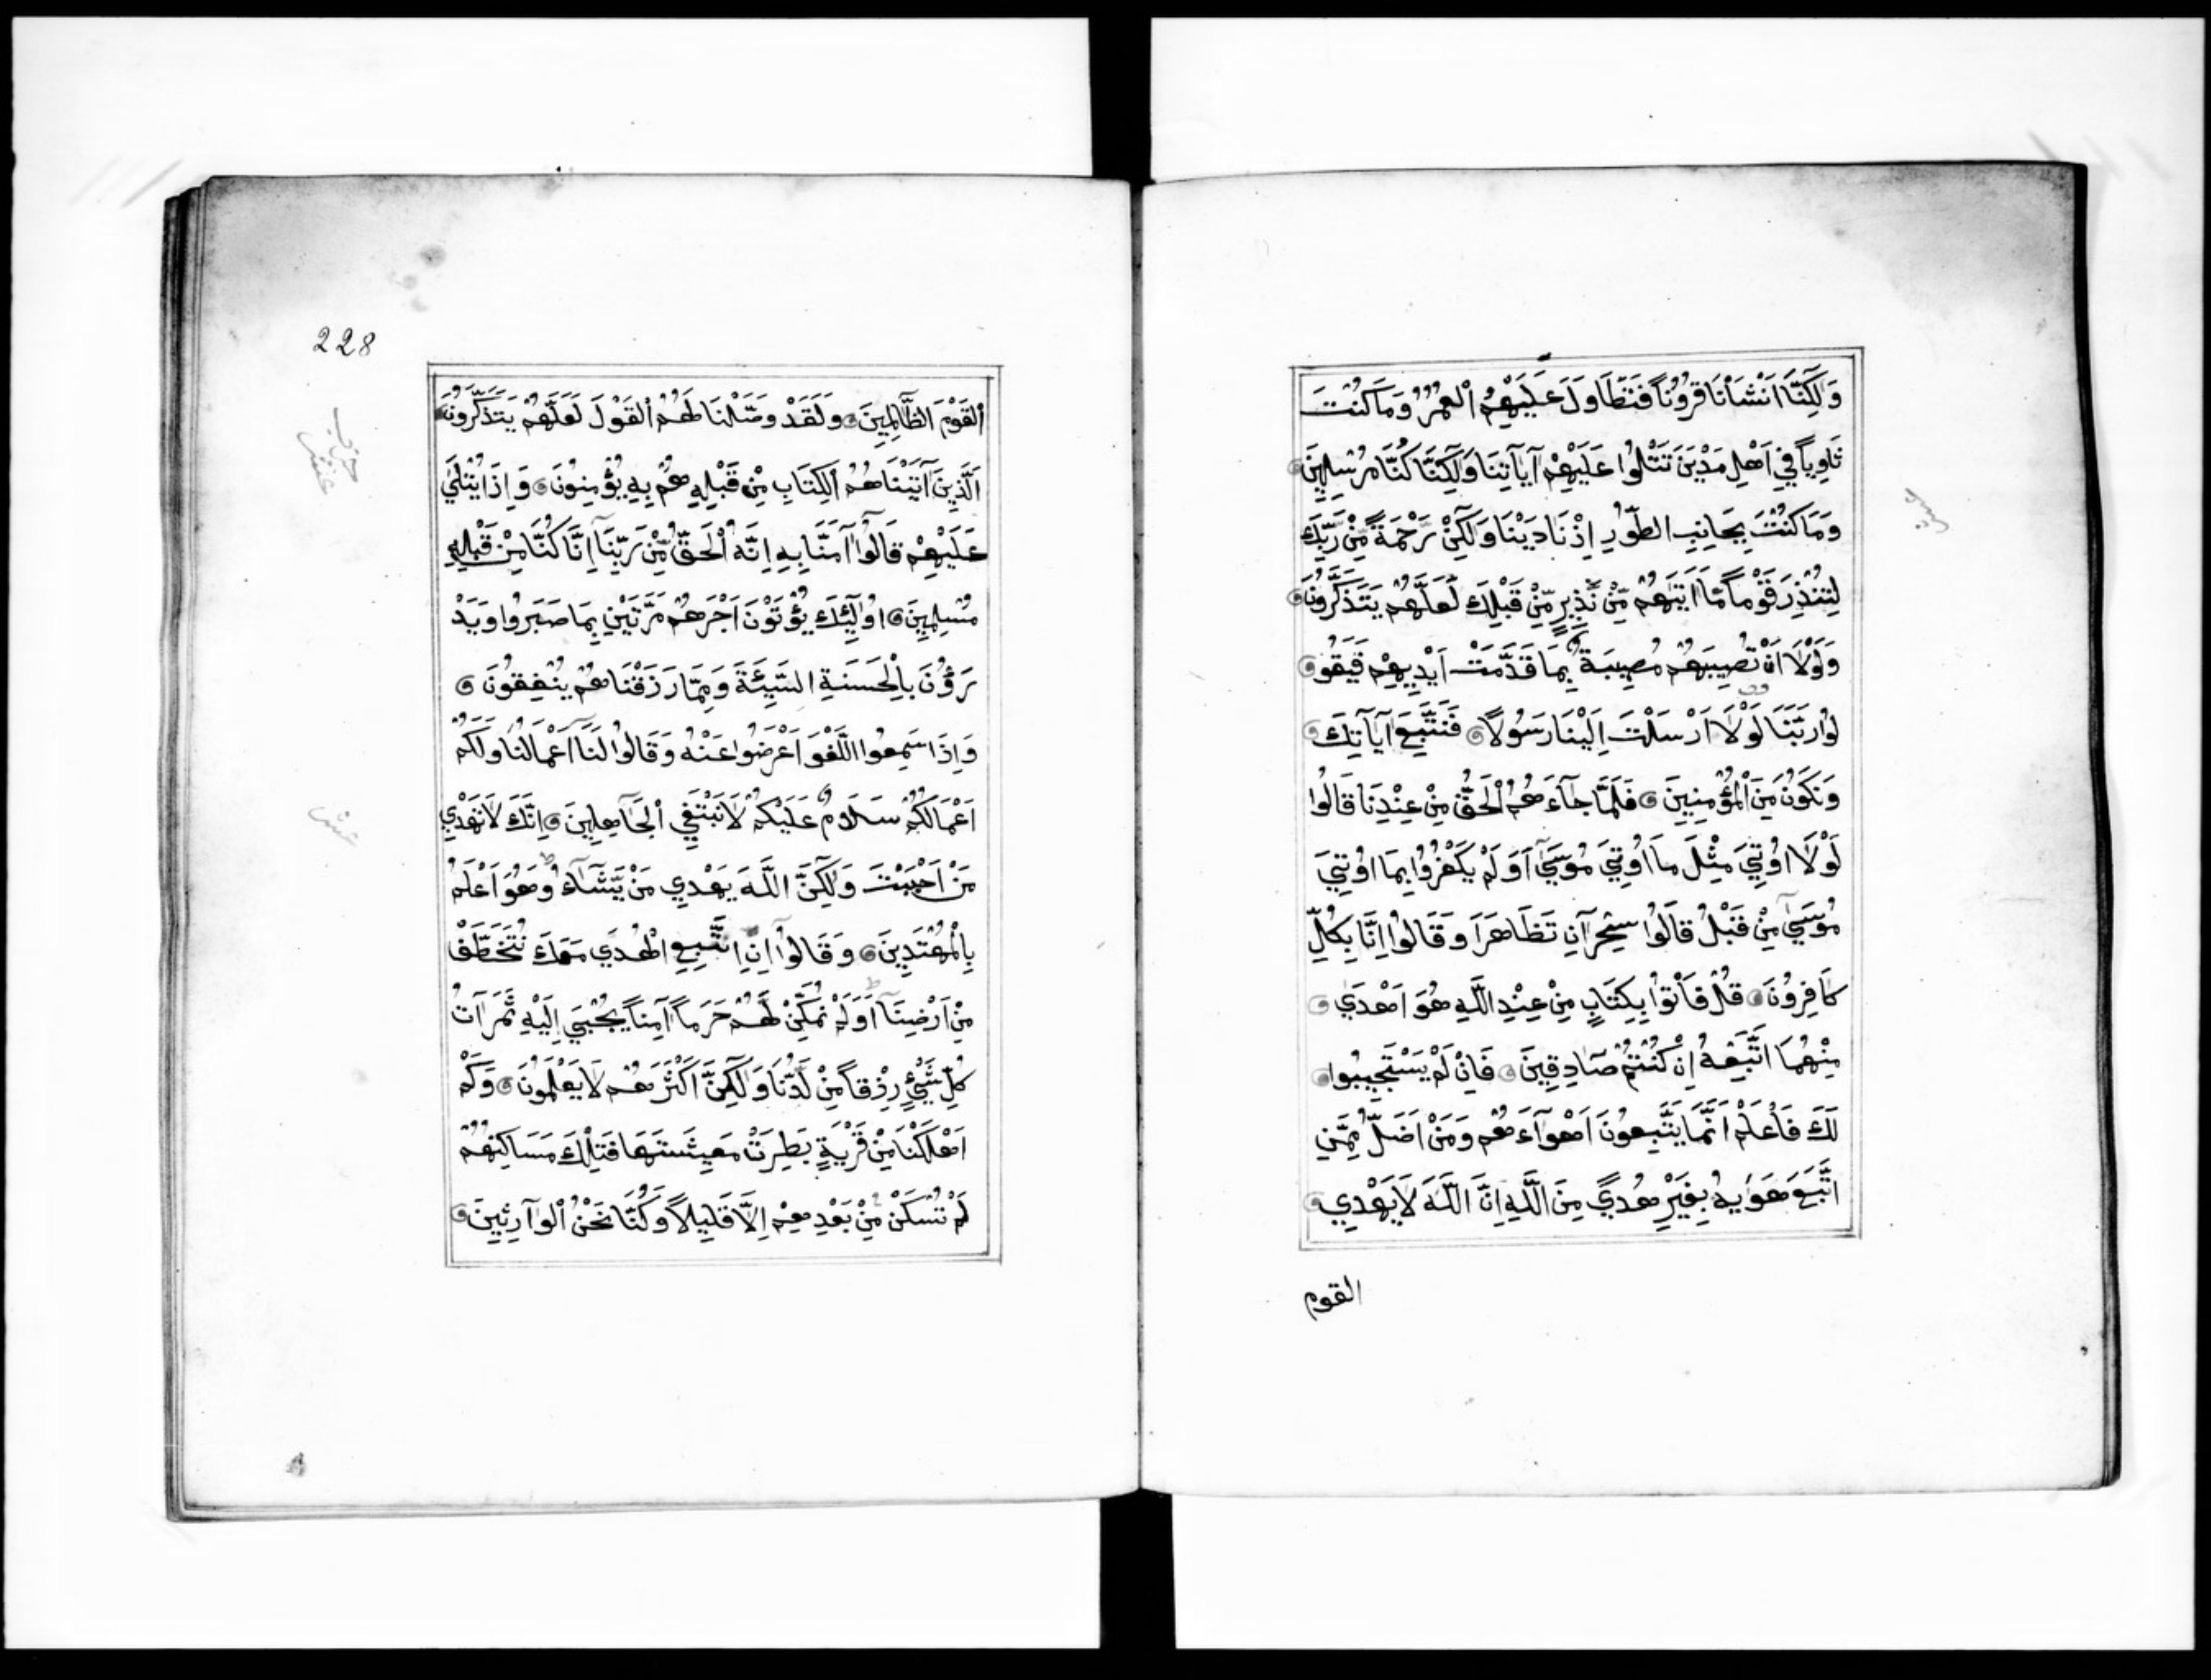 وَلٰكِنَّٓا اَنْشَأْنَا قُرُونًا فَتَطَاوَلَ عَلَيْهِمُ الْعُمُرُ وَمَا كُنْتَ
ثَاوِيًا فِي اَهْلِ مَدْيَنَ تَتْلُوا عَلَيْهِمْ آيَاتِنَا وَلٰكِنَّا كُنَّا مُرْسِلِينَ
وَمَا كُنْتَ بِجَانِبِ الطُّورِ اِذْ نَادَيْنَا وَلٰكِنْ رَحْمَةً مِّنْ رَبِّكَ
لِتُنْذِرَ قَوْمًا مَّا اَتٰيهُمْ مِّنْ نَّذِيرٍ مِّنْ قَبْلِكَ لَعَلَّهُمْ يَتَذَكَّرُونَ
وَلَوْلَا اَنْ تُصِيبَهُمْ مُصِيبَةٌ بِمَا قَدَّمَتْ اَيْدِيهِمْ فَيَقُو
لُوا رَبَّنَا لَوْلَا اَرْسَلْتَ اِلَيْنَا رَسُولًا فَنَتَّبِعَ آيَاتِكَ
وَنَكُونَ مِنَ الْمُؤْمِنِينَ فَلَمَّا جَآءَهُمُ الْحَقُّ مِنْ عِنْدِنَا قَالُوا
لَوْلَا اُوتِيَ مِثْلَ مَا اُوتِيَ مُوسٰىٓ اَوَلَمْ يَكْفُرُوا بِمَا اُوتِيَ
مُوسٰى مِنْ قَبْلُ قَالُوا سِحْرَانِ تَظَاهَرَا وَقَالُوا اِنَّا بِكُلٍّ
كَافِرُونَ قُلْ فَأْتُوا بِكِتَابٍ مِنْ عِنْدِ اللَّهِ هُوَ اَهْدٰى
مِنْهُمَا اَتَّبِعْهُ اِنْ كُنْتُمْ صَادِقِينَ فَاِنْ لَمْ يَسْتَجِيبُوا
لَكَ فَاعْلَمْ اَنَّمَا يَتَّبِعُونَ اَهْوَآءَهُمْ وَمَنْ اَضَلُّ مِمَّنِ
اتَّبَعَ هَوٰيهُ بِغَيْرِ هُدًى مِنَ اللَّهِ اِنَّ اللَّهَ لَا يَهْدِي
القوم
228
الْقَوْمَ الظَّالِمِينَ وَلَقَدْ وَصَّلْنَا لَهُمُ الْقَوْلَ لَعَلَّهُمْ يَتَذَكَّرُونَ
اَلَّذِينَ آتَيْنَاهُمُ الْكِتَابَ مِنْ قَبْلِهِ هُمْ بِهِ يُؤْمِنُونَ وَاِذَا يُتْلٰى
عَلَيْهِمْ قَالُوا آمَنَّا بِهِ اِنَّهُ الْحَقُّ مِنْ رَبِّنَا اِنَّا كُنَّا مِنْ قَبْلِهِ
مُسْلِمِينَ اُولٰٓئِكَ يُؤْتَوْنَ اَجْرَهُمْ مَرَّتَيْنِ بِمَا صَبَرُوا وَيَدْ
رَؤُنَ بِالْحَسَنَةِ السَّيِّئَةَ وَمِمَّا رَزَقْنَاهُمْ يُنْفِقُونَ
وَاِذَا سَمِعُوا اللَّغْوَ اَعْرَضُوا عَنْهُ وَقَالُوا لَنَا اَعْمَالُنَا وَلَكُمْ
اَعْمَالُكُمْ سَلَامٌ عَلَيْكُمْ لَا نَبْتَغِي الْجَاهِلِينَ اِنَّكَ لَا تَهْدِي
مَنْ اَحْبَبْتَ وَلٰكِنَّ اللَّهَ يَهْدِي مَنْ يَّشَآءُ وَهُوَ اَعْلَمُ
بِالْمُهْتَدِينَ وَقَالُوا اِنْ نَتَّبِعِ الْهُدٰى مَعَكَ نُتَخَطَّفْ
مِنْ اَرْضِنَا اَوَلَمْ نُمَكِّنْ لَّهُمْ حَرَمًا آمِنًا يُجْبٰى اِلَيْهِ ثَمَرَاتُ
كُلِّ شَيْءٍ رِزْقًا مِنْ لَدُنَّا وَلٰكِنَّ اَكْثَرَهُمْ لَا يَعْلَمُونَ وَكَمْ
اَهْلَكْنَا مِنْ قَرْيَةٍ بَطِرَتْ مَعِيشَتَهَا فَتِلْكَ مَسَاكِنُهُمْ
لَمْ تُسْكَنْ مِنْ بَعْدِهِمْ اِلَّا قَلِيلًا وَكُنَّا نَحْنُ الْوَارِثِينَ